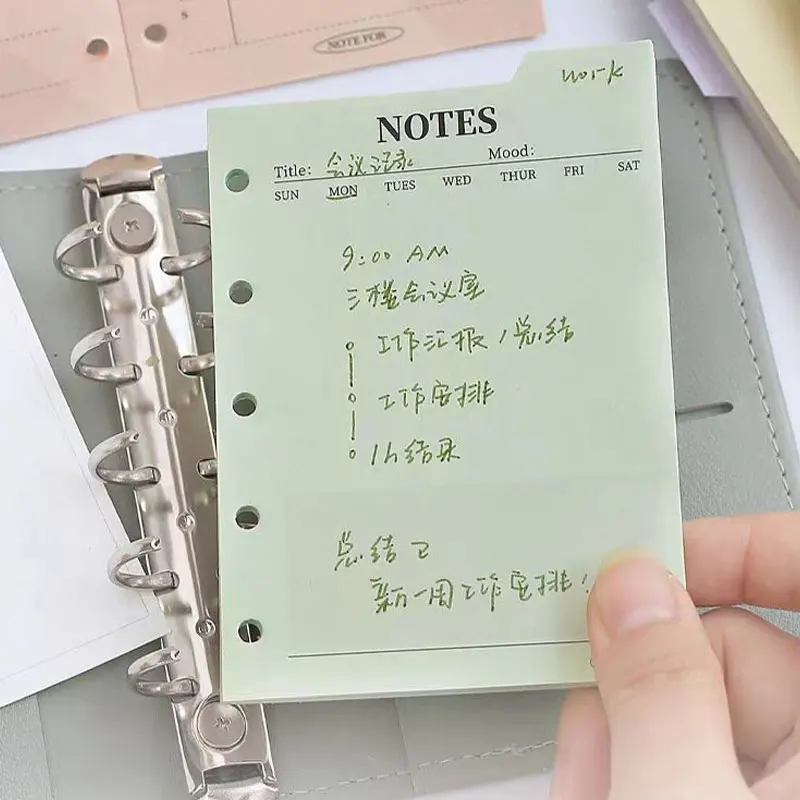 NOTE FOR
work
NOTES
Title: 会议记录 Mood:
SUN MON TUES WED THUR FRI SAT
9:00 AM
三楼会议室
工作汇报/总结
工作安排
1h结束
总结
新一周工作安排!